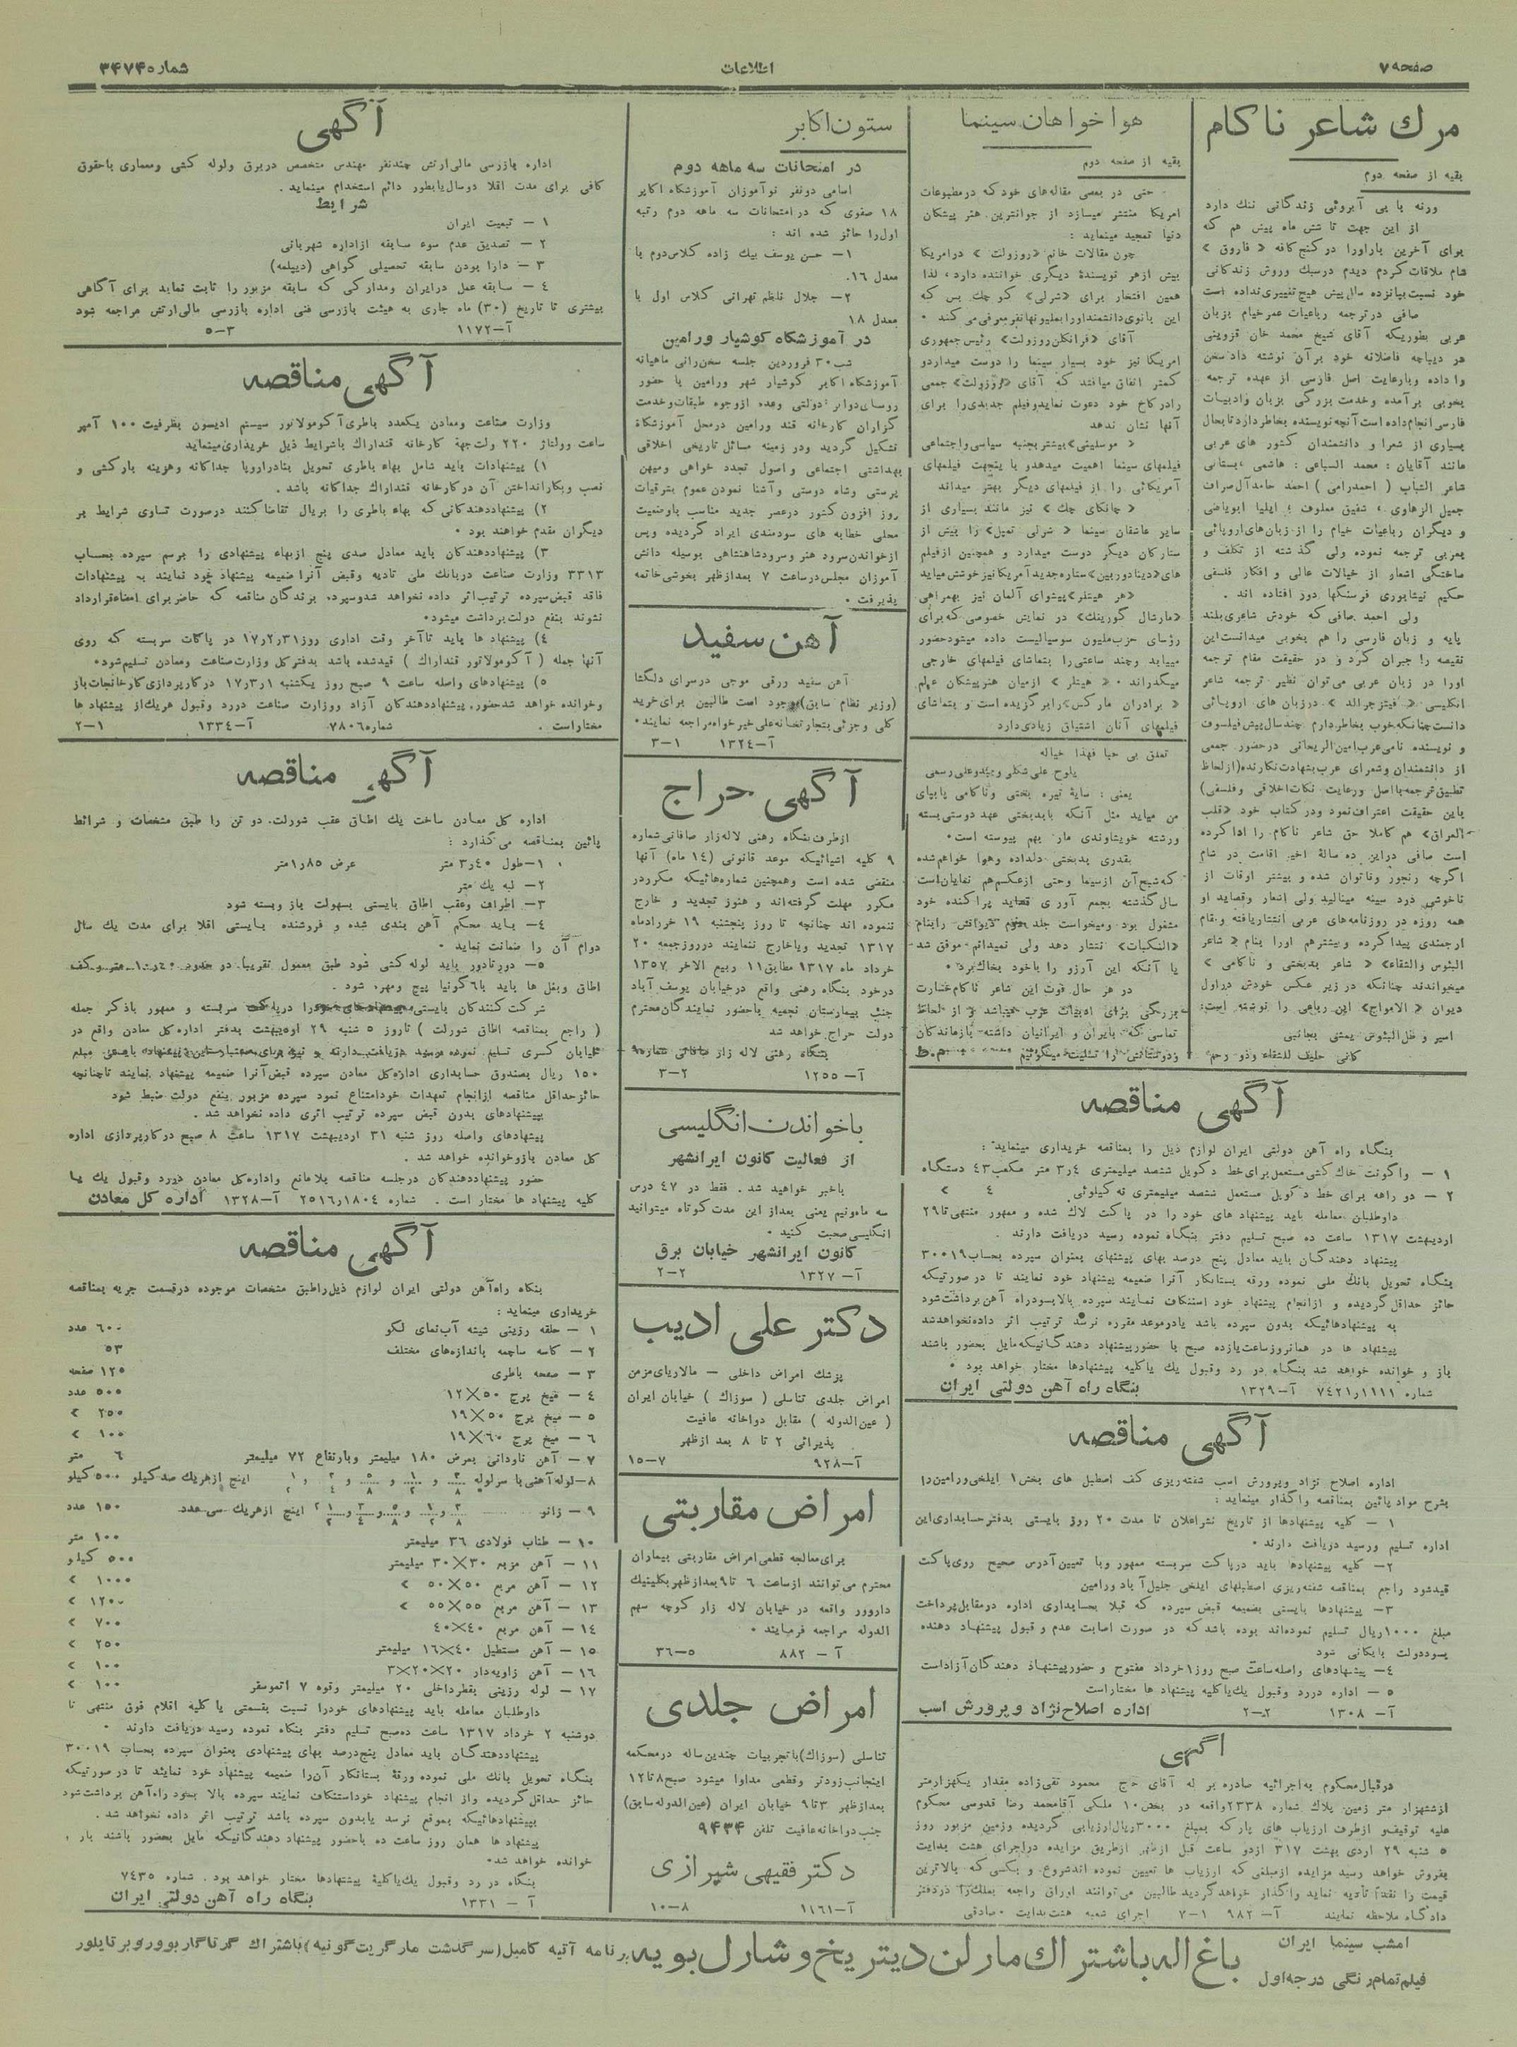 صفحه ۷
اطلاعات
شماره ۳۴۷۴
مرك شاعر ناکام
بقیه از صفحه دوم
ورنه با بی آبروئی زندگانی ننك دارد
از این جهت تا شش ماه پیش هم که
برای آخرین باراورا درکنج کافه « فاروق »
شام ملاقات کردم دیدم درسبك وروش زندگانی
خود نسبت بپانزده سال پیش هیچ تغییری نداده است
صافی درترجمه رباعیات عمرخیام بزبان
عربی بطوریکه آقای شیخ محمد خان قزوینی
در دیباچه فاضلانه خود برآن نوشته داد سخن
را داده وبارعایت اصل فارسی از عهده ترجمه
بخوبی برآمده وخدمت بزرگی بزبان وادبیات
فارسی انجام داده است آنچه نویسنده بخاطردارد تابحال
بسیاری از شعرا و دانشمندان کشور های عربی
مانند آقایان : محمد السباعی : هاشمی ؛ بستانی
شاعر الشباب ( احمدرامی ) احمد حامدآل صراف
جمیل الزهاوی ؛ شفیق معلوف ؛ ایلیا ابوماضی
و دیگران رباعیات خیام را از زبان‌های اروپائی
بعربی ترجمه نموده ولی گذشته از تکلف و
ساختگی اشعار از خیالات عالی و افکار فلسفی
حکیم نیشابوری فرسنگها دور افتاده اند .
ولی احمد صافی که خودش شاعری بلند
پایه و زبان فارسی را هم بخوبی میدانست این
نقیصه را جبران کرد و در حقیقت مقام ترجمه
اورا در زبان عربی می‌توان نظیر ترجمه شاعر
انگلیسی « فیتزجرالد » درزبان های اروپائی
دانست چنانکه خوب بخاطردارم چند سال پیش فیلسوف
و نویسنده نامی عرب امین الریحانی درحضور جمعی
از دانشمندان وشعرای عرب بشهادت نگارنده (ازلحاظ
تطبیق ترجمه بااصل ورعایت نکات اخلاقی و فلسفی)
باین حقیقت اعتراف نمود ودرکتاب خود «قلب
العراق» هم کاملا حق شاعر ناکام را ادا کرده
است صافی دراین ده سالهٔ اخیر اقامت در شام
اگرچه رنجور وناتوان شده و بیشتر اوقات از
ناخوشی درد سینه مینالید ولی اشعار وقصاید او
همه روزه در روزنامه‌های عربی انتشار یافته ومقام
ارجمندی پیدا کرده وبیشترهم اورا بنام « شاعر
البئوس والشقاء» « شاعر بدبختی و ناکامی »
میخواندند چنانکه در زیر عکس خودش دراول
دیوان « الامواج» این رباعی را نوشته است:
اسیر و ظل البئوس یمشی بجانبی
کانی حلیف للشقاء وذو رحم
هواخواهان سینما
بقیه از صفحه دوم
حتی در بعضی مقاله‌های خود که درمطبوعات
امریکا منتشر میسازد از جوانترین هنر پیشگان
دنیا تمجید مینماید :
چون مقالات خانم «روزولت» درامریکا
بیش ازهر نویسندهٔ دیگری خواننده دارد، لذا
همین افتخار برای «شرلی» کوچك بس که
این بانوی دانشمند اورا بملیونها نفر معرفی می کند .
آقای «فرانکلن روزولت» رئیس جمهوری
امریکا نیز خود بسیار سینما را دوست میدارد و
کمتر اتفاق میافتد که آقای «روزولت» جمعی
رادرکاخ خود دعوت نماید وفیلم جدیدی را برای
آنها نشان ندهد
« موسلینی» بیشتر بجنبه سیاسی واجتماعی
فیلمهای سینما اهمیت میدهد و باینجهت فیلمهای
آمریکائی را از فیلمهای دیگر بهتر میداند
« چانکای چك » نیز مانند بسیاری از
سایر عاشقان سینما « شرلی تمپل» را بیش از
ستارگان دیگر دوست میدارد و همچنین ازفیلم
های «دینا دوربین» ستاره جدید آمریکا نیز خوشش میاید
«هر هیتلر» پیشوای آلمان نیز بهمراهی
«مارشال گورینك» در نمایش خصوصی که برای
رؤسای حزب ملیون سوسیالیست داده میشود حضور
مییابد وچند ساعتی را بتماشای فیلمهای خارجی
میگذراند . « هیتلر » ازمیان هنرپیشگان عالم
« برادران مارکس» را برگزیده است و بتماشای
فیلمهای آنان اشتیاق زیادی دارد
تعلق بی حبا فهذا خیاله
یلوح علی شکلی ویبدو علی رسمی
یعنی : سایهٔ تیره بختی وناکامی پابپای
من میاید مثل آنکه بابدبختی عهد دوستی بسته
ورشته خویشاوندی مارا بهم پیوسته است.
بقدری بدبختی دلداده وهوا خواهم شده
که شبح آن ازسیما وحتی ازعکسم هم نمایان است
سال گذشته بجمع آوری قصاید پراکنده خود
مشغول بود ومیخواست جلد دوم دیوانش رابنام
«النکبات» انتشار دهد ولی نمیدانم موفق شد
یا آنکه این آرزو را باخود بخاك برد.
در هر حال فوت این شاعر ناکام خسارت
بزرگی برای ادبیات عرب میباشد و از لحاظ
تماسی که بایران و ایرانیان داشته بازماندگان
ودوستانش را تسلیت میگوئیم
ستون اکابر
در امتحانات سه ماهه دوم
اسامی دونفر نوآموزان آموزشگاه اکابر
۱۸ صفوی که درامتحانات سه ماهه دوم رتبه
اول را حائز شده اند :
۱– حسن یوسف بیك زاده کلاس دوم با
معدل ۱۶.
۲– جلال ناظم تهرانی کلاس اول با
معدل ۱۸
در آموزشگاه کوشیار ورامین
شب ۳۰ فروردین جلسه سخن رانی ماهیانه
آموزشگاه اکابر کوشیار شهر ورامین با حضور
روسای دوایر دولتی وعده ازوجوه طبقات وخدمت
گزاران کارخانه قند ورامین درمحل آموزشگاه
تشکیل گردید ودر زمینه مسائل تاریخی اخلاقی
بهداشتی اجتماعی و اصول تجدد خواهی ومیهن
پرستی وشاه دوستی وآشنا نمودن عموم بترقیات
روز افزون کشور درعصر جدید مناسب باوضعیت
محلی خطابه های سودمندی ایراد گردیده وپس
ازخواندن سرود هنر وسرودشاهنشاهی بوسیله دانش
آموزان مجلس درساعت ۷ بعدازظهر بخوشی خاتمه
پذیرفت .
آهن سفید
آهن سفید ورقی موجی درسرای دلگشا
(وزیر نظام سابق) موجود است طالبین برای خرید
کلی وجزئی بتجارتخانه علی خیر خواه مراجعه نمایند.
آ–۱۳۲۴ ۳–۱
آگهی حراج
ازطرف بنگاه رهنی لاله زار صافانی شماره
۹ کلیه اشیائیکه موعد قانونی (۱۴ ماه) آنها
منقضی شده است وهمچنین شماره‌هائیکه مکرردر
مکرر مهلت گرفته‌اند و هنوز تجدید و خارج
ننموده اند چنانچه تا روز پنجشنبه ۱۹ خردادماه
۱۳۱۷ تجدید ویاخارج ننمایند درروزجمعه ۲۰
خرداد ماه ۱۳۱۷ مطابق ۱۱ ربیع الاخر ۱۳۵۷
درخود بنگاه رهنی واقع درخیابان یوسف آباد
جنب بیمارستان نجمیه باحضور نمایندگان محترم
دولت حراج خواهد شد
بنگاه رهنی لاله زار صافانی شماره ۹
آ–۱۲۵۵ ۳–۲
باخواندن انگلیسی
از فعالیت کانون ایرانشهر
باخبر خواهید شد. فقط در ۴۷ درس
سه ماه‌ونیم یعنی بعداز این مدت کوتاه میتوانید
انگلیسی صحبت کنید .
کانون ایرانشهر خیابان برق
آ–۱۳۲۷ ۲–۲
دکتر علی ادیب
پزشك امراض داخلی – مالاریای مزمن
امراض جلدی تناسلی ( سوزاك ) خیابان ایران
( عین الدوله ) مقابل دواخانه عافیت
پذیرائی ۲ تا ۸ بعد ازظهر
آ–۹۲۸ ۱۵–۷
امراض مقاربتی
برای معالجه قطعی امراض مقاربتی بیماران
محترم می‌توانند ازساعت ۶ تا ۹ بعدازظهر بکلینیك
داروور واقعه در خیابان لاله زار کوچه سهم
الدوله مراجعه فرمایند .
آ – ۸۸۲ ۳۶–۵
امراض جلدی
تناسلی (سوزاك) باتجربیات چندین ساله درمحکمه
اینجانب زودتر وقطعی مداوا میشود صبح ۸تا۱۲
بعدازظهر ۳تا۹ خیابان ایران (عین الدوله سابق)
جنب دواخانه عافیت تلفن ۹۴۳۴
دکتر فقیهی شیرازی
آ–۱۱۶۱ ۱۰–۸
آگهی
اداره بازرسی مالی ارتش چندنفر مهندس متخصص دربرق ولوله کشی ومعماری باحقوق
کافی برای مدت اقلا دوسال یابطور دائم استخدام مینماید .
شرایط
۱ – تبعیت ایران
۲ – تصدیق عدم سوء سابقه ازاداره شهربانی
۳ – دارا بودن سابقه تحصیلی گواهی (دیپلمه)
۴ – سابقه عمل درایران ومدارکی که سابقه مزبور را ثابت نماید برای آگاهی
بیشتری تا تاریخ (۳۰) ماه جاری به هیئت بازرسی فنی اداره بازرسی مالی ارتش مراجعه شود
آ–۱۱۷۲ ۵–۳
آگهی مناقصه
وزارت صناعت ومعادن یکعدد باطری آکومولاتور سیستم ادیسون بظرفیت ۱۰۰ آمپر
ساعت وولتاژ ۲۲۰ ولت جهة کارخانه قنداراك باشرایط ذیل خریداری مینماید
۱) پیشنهادات باید شامل بهاء باطری تحویل بنادراروپا جداگانه وهزینه بارکشی و
نصب وبکارانداختن آن درکارخانه قنداراك جداگانه باشد .
۲) پیشنهاددهندگانی که بهاء باطری را بریال تقاضا کنند درصورت تساوی شرایط بر
دیگران مقدم خواهند بود .
۳) پیشنهاددهندگان باید معادل صدی پنج ازبهاء پیشنهادی را برسم سپرده بحساب
۳۳۱۳ وزارت صناعت دربانك ملی تادیه وقبض آنرا ضمیمه پیشنهاد خود نمایند به پیشنهادات
فاقد قبض سپرده ترتیب اثر داده نخواهد شد وسپرده برندگان مناقصه که حاضر برای امضاء قرارداد
نشوند بنفع دولت برداشت میشود.
۴) پیشنهاد ها باید تاآخر وقت اداری روز ۱۷ر۲ر۳۱ در پاکات سربسته که روی
آنها جمله ( آکومولاتور قنداراك ) قیدشده باشد بدفترکل وزارت صناعت ومعادن تسلیم شود.
۵) پیشنهادهای واصله ساعت ۹ صبح روز یکشنبه ۱۷ر۳ر۱ درکارپردازی کارخانجات باز
وخوانده خواهد شد حضور پیشنهاددهندگان آزاد ووزارت صناعت دررد وقبول هریك از پیشنهاد ها
مختار است . شماره ۷۸۰۶ آ–۱۳۳۴ ۲–۱
آگهی مناقصه
اداره کل معادن ساخت یك اطاق عقب شورلت دو تن را طبق مشخصات و شرائط
پائین بمناقصه می‌گذارد :
۱–طول ۳ر۴۰ متر عرض ۱ر۸۵متر
۲– لبه یك متر
۳– اطراف وعقب اطاق بایستی بسهولت باز وبسته شود
۴– باید محکم آهن بندی شده و فروشنده بایستی اقلا برای مدت یك سال
دوام آن را ضمانت نماید .
۵– دورتادور باید لوله کشی شود طبق معمول تقریبا در حدود
اطاق وبغل ها باید با ۶ گونیا پیچ ومهره شود .
شرکت کنندگان بایستی پیشنهادهای خود را درپاکت سربسته و ممهور باذکر جمله
( راجع بمناقصه اطاق شورلت ) تاروز ۵ شنبه ۲۹ اردیبهشت بدفتر اداره کل معادن واقع در
۱۵۰ ریال بصندوق حسابداری اداره کل معادن سپرده قبض آنرا ضمیمه پیشنهاد نمایند تاچنانچه
حائزحداقل مناقصه ازانجام تعهدات خودامتناع نمود سپرده مزبور بنفع دولت ضبط شود
بپیشنهادهای بدون قبض سپرده ترتیب اثری داده نخواهد شد .
پیشنهادهای واصله روز شنبه ۳۱ اردیبهشت ۱۳۱۷ ساعت ۸ صبح درکارپردازی اداره
کل معادن بازوخوانده خواهد شد .
حضور پیشنهاددهندگان درجلسه مناقصه بلامانع واداره کل معادن دررد وقبول یك یا
کلیه پیشنهاد ها مختار است . شماره ۱۸۰۴ر۲۵۱۶ آ–۱۳۲۸ اداره کل معادن
آگهی مناقصه
بنگاه راه آهن دولتی ایران لوازم ذیل راطبق مشخصات موجوده درقسمت جریه بمناقصه
خریداری مینماید :
۱ – حلقه رزینی شیشه آب‌نمای لکو ۶۰۰ عدد
۲ – کاسه ساچمه باندازه‌های مختلف ۵۳
۳ – صفحه باطری ۱۲۵ صفحه
۴ – میخ پرچ ۵۰×۱۲ ۵۰۰ عدد
۵ – میخ پرچ ۵۰×۱۹ ۲۵۰ »
۶ – میخ پرچ ۶۰×۱۹ ۱۰۰ »
۷ – آهن ناودانی بعرض ۱۸۰ میلیمتر وبارتفاع ۷۲ میلیمتر ۶ متر
۸–لوله آهنی با سرلوله اینچ ازهریك صد کیلو ۵۰۰ کیلو
۹ – زانو اینچ ازهریك سی عدد ۱۵۰ عدد
۱۰ – طناب فولادی ۳۶ میلیمتر ۱۰۰ متر
۱۱ – آهن مربع ۳۰×۳۰ میلیمتر ۵۰۰ کیلو
۱۲ – آهن مربع ۵۰×۵۰ » ۱۰۰۰ »
۱۳ – آهن مربع ۵۵×۵۵ » ۱۲۰۰ »
۱۴ – آهن مربع ۴۰×۴۰ ۷۰۰ »
۱۵ – آهن مستطیل ۴۰×۱۶ میلیمتر ۲۵۰ »
۱۶ – آهن زاویه‌دار ۲۰×۲۰×۳ ۱۰۰ »
۱۷ – لوله رزینی بقطرداخلی ۲۰ میلیمتر وقوه ۷ اتموسفر ۱۰۰ »
داوطلبان معامله باید پیشنهادهای خودرا نسبت بقسمتی یا کلیه اقلام فوق منتهی تا
دوشنبه ۲ خرداد ۱۳۱۷ ساعت ده‌صبح تسلیم دفتر بنگاه نموده رسید دریافت دارند .
پیشنهاددهندگان باید معادل پنج‌درصد بهای پیشنهادی بعنوان سپرده بحساب ۳۰۰۱۹
بنگاه تحویل بانك ملی نموده ورقهٔ بستانکار آن‌را ضمیمه پیشنهاد خود نمایند تا درصورتیکه
حائز حداقل گردیده واز انجام پیشنهاد خوداستنکاف نمایند سپرده بالا بسود راه آهن برداشت شود
بپیشنهادهائیکه بموقع نرسد یابدون سپرده باشد ترتیب اثر داده نخواهد شد .
پیشنهاد ها همان روز ساعت ده باحضور پیشنهاد دهندگانیکه مایل بحضور باشند باز و
خوانده خواهد شد.
بنگاه در رد وقبول یك یاکلیهٔ پیشنهادها مختار خواهد بود. شماره ۷۴۳۵
آ – ۱۳۳۱ بنگاه راه آهن دولتی ایران
آگهی مناقصه
بنگاه راه آهن دولتی ایران لوازم ذیل را بمناقصه خریداری مینماید :
۱ – واگونت خاك کشی مستعمل برای خط دکویل ششصد میلیمتری ۳ر۴ متر مکعب ۴۳ دستگاه
۲ – دو راهه برای خط دکویل مستعمل ششصد میلیمتری نه کیلوئی ۴ »
داوطلبان معامله باید پیشنهاد های خود را در پاکت لاك شده و ممهور منتهی تا ۲۹
اردیبهشت ۱۳۱۷ ساعت ده صبح تسلیم دفتر بنگاه نموده رسید دریافت دارند .
پیشنهاد دهندگان باید معادل پنج درصد بهای پیشنهای بعنوان سپرده بحساب ۳۰۰۱۹
بنگاه تحویل بانك ملی نموده ورقه بستانکار آنرا ضمیمه پیشنهاد خود نمایند تا درصورتیکه
حائز حداقل گردیده و ازانجام پیشنهاد خود استنکاف نمایند سپرده بالا بسود راه آهن برداشت شود
به پیشنهادهائیکه بدون سپرده باشد یادرموعد مقرره نرسد ترتیب اثر داده نخواهد شد
پیشنهاد ها در همانروز ساعت یازده صبح با حضور پیشنهاد دهندگانیکه مایل بحضور باشند
باز و خوانده خواهد شد بنگاه در رد وقبول یك یاکلیه پیشنهادها مختار خواهد بود .
شماره ۱۱۱۱ر۷۴۲۱ آ–۱۳۲۹ بنگاه راه آهن دولتی ایران
آگهی مناقصه
اداره اصلاح نژاد وپرورش اسب شفته‌ریزی کف اصطبل های بخش ۱ ایلخی ورامین را
بشرح مواد پائین بمناقصه واگذار مینماید :
۱ – کلیه پیشنهادها از تاریخ نشراعلان تا مدت ۲۰ روز بایستی بدفتر حسابداری این
اداره تسلیم ورسید دریافت دارند .
۲– کلیه پیشنهادها باید درپاکت سربسته ممهور وبا تعیین آدرس صحیح روی پاکت
قیدشود راجع بمناقصه شفته‌ریزی اصطبلهای ایلخی جلیل آباد ورامین
۳– پیشنهادها بایستی بضمیمه قبض سپرده که قبلا بحسابداری اداره درمقابل پرداخت
مبلغ ۱۰۰۰ریال تسلیم نموده‌اند بوده باشد که در صورت اصابت عدم و قبول پیشنهاد دهنده
بسوددولت بایگانی شود
۴– پیشنهادهای واصله ساعت صبح روز ۱ خرداد مفتوح و حضور پیشنهاد دهندگان آزاد است
۵ – اداره دررد وقبول یك یاکلیه پیشنهاد ها مختار است
آ– ۱۳۰۸ ۲–۲ اداره اصلاح نژاد و پرورش اسب
آگهی
درقبال محکوم به اجرائیه صادره بر له آقای حاج محمود تقی زاده مقدار یکهزار متر
ازششهزار متر زمین پلاك شماره ۲۳۳۸ واقعه در بخش ۱۰ ملکی آقامحمد رضا قدوسی محکوم
علیه توقیف و ازطرف ارزیاب های پارکه بمبلغ ۳۰۰۰ریال ارزیابی گردیده وزمین مزبور روز
۵ شنبه ۲۹ اردی بهشت ۳۱۷ ازدو ساعت قبل ازظهر ازطریق مزایده دراجرای هشت بدایت
بفروش خواهد رسید مزایده ازمبلغی که ارزیاب ها تعیین نموده اند شروع و بکسی که بالاترین
قیمت را نقداً تأدیه نماید واگذار خواهد گردید طالبین می‌توانند اوراق راجعه بملك را دردفتر
دادگاه ملاحظه نمایند آ–۹۸۲ ۷–۱ اجرای شعبه هشت بدایت . صادقی
امشب سینما ایران
فیلم تمام رنگی درجه اول
باغ اله باشتراك مارلن دیتریخ و شارل بویه
برنامه آتیه کامیل (سرگذشت مارگریت گوتیه) باشتراك گرتا گاربو و روبرتایلور